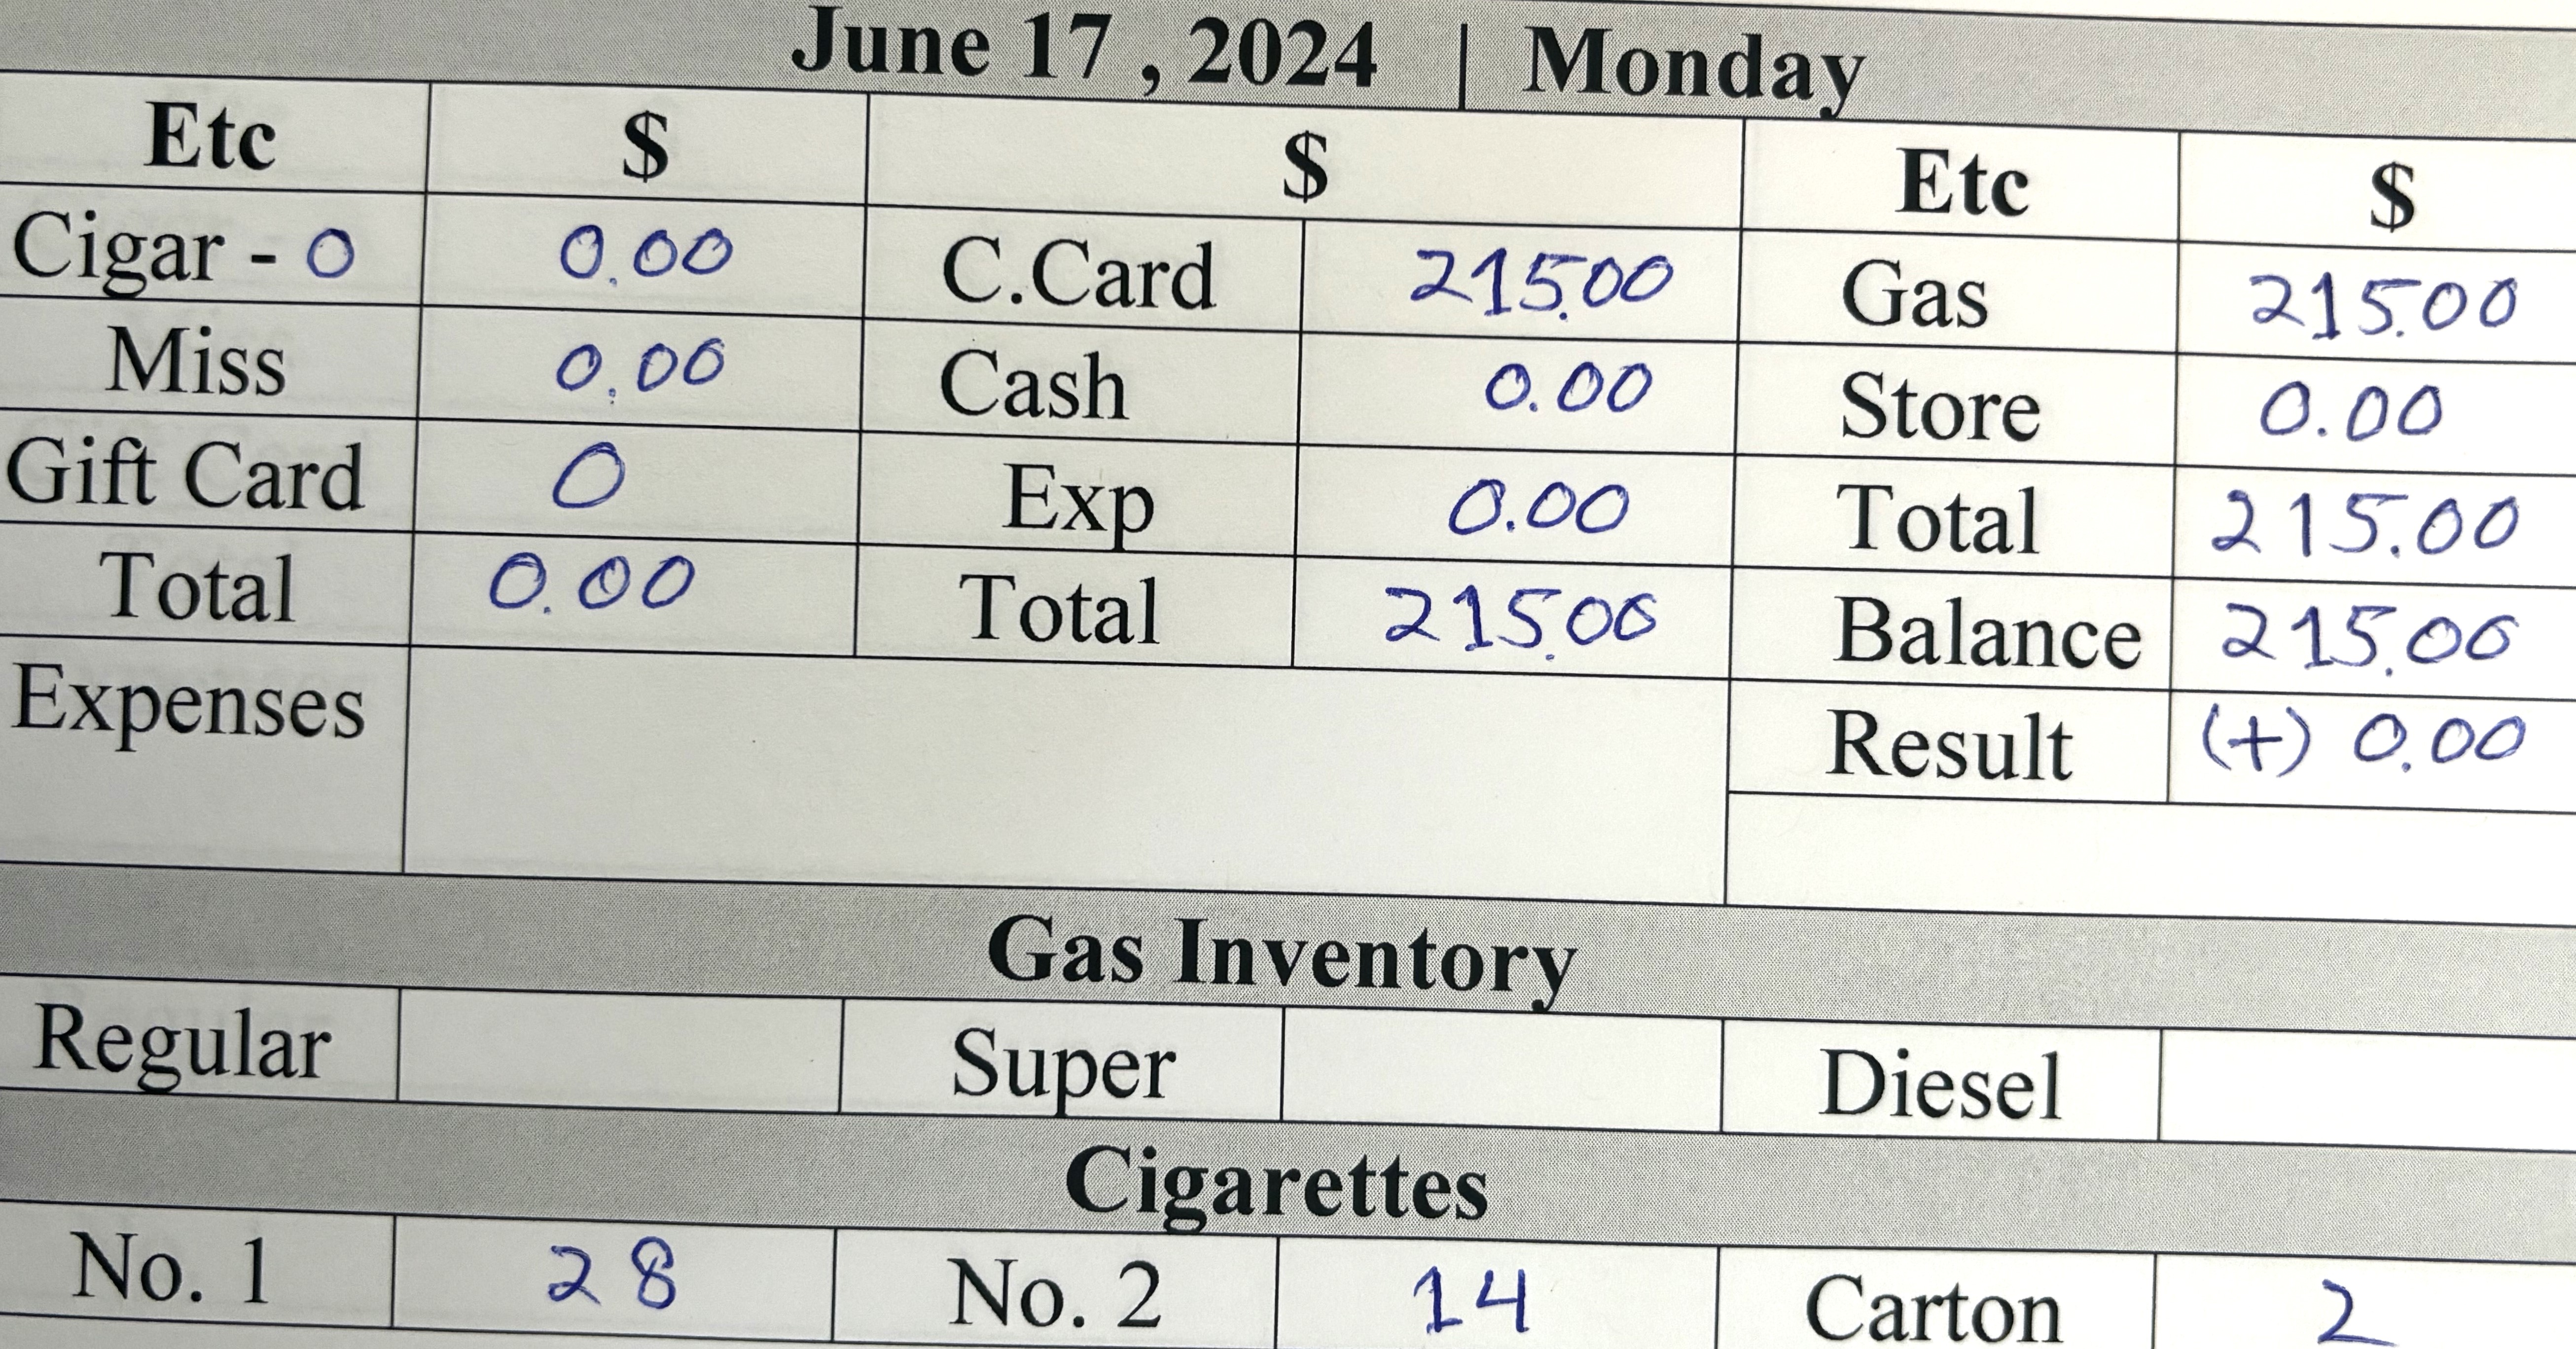 June 17 , 2024 | Monday
Etc $ $ Etc $
Cigar - 0 0.00 C.Card 215.00 Gas 215.00
Miss 0.00 Cash 0.00 Store 0.00
Gift Card 0 Exp 0.00 Total 215.00
Total 0.00 Total 215.00 Balance 215.00
Expenses Result (+) 0.00
Gas Inventory
Regular Super Diesel
Cigarettes
No. 1 28 No. 2 14 Carton 2